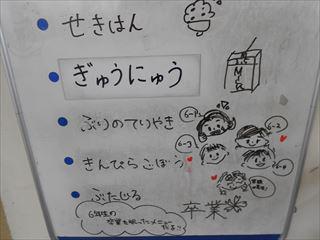 せきはん
ぎゅうにゅう
MILK
ぶりのてりやき
6-1
6-2
6-3
6-4
きんぴらごぼう
ぶたじる
6年生の
卒業を祝ったメニュー
だよ!!
卒業